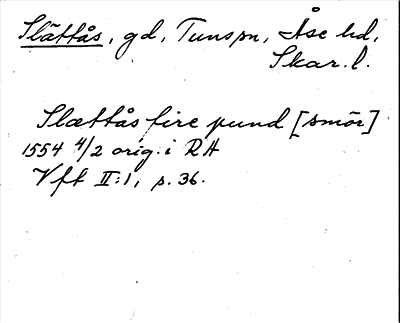 Slättås, gd, Tunspn, Åse hd,
Skar. l.
Slættås fire pund [smör]
1554 4/2 orig. i RA
Vft II:1, p. 36.